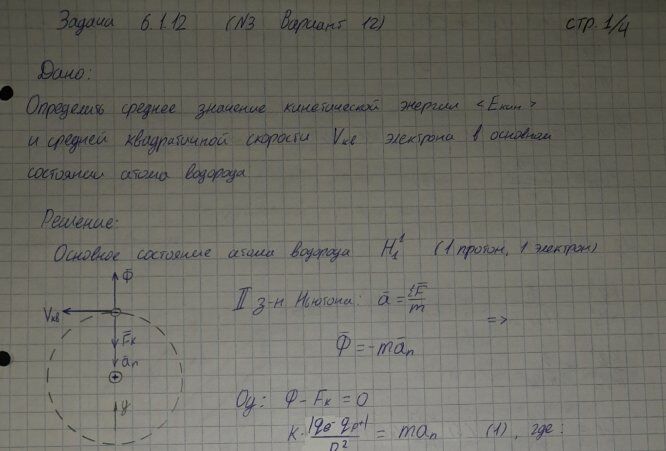 Задача 6.1.12 (N3 Вариант 12) стр. 1/4
Дано:
Определить среднее значение кинетической энергии <Eкин>
и средней квадратичной скорости Vкв электрона в основном
состоянии атома водорода
Решение:
Основное состояние атома водорода H₁¹ (1 протон, 1 электрон)
Ф̄
Vкв
F̄к
āп
y
II з-н Ньютона: ā = ΣF̄/m
=>
Ф̄ = -māп
Oy: Ф - Fк = 0
к · |qe- qp+|/r² = maп (1), где: